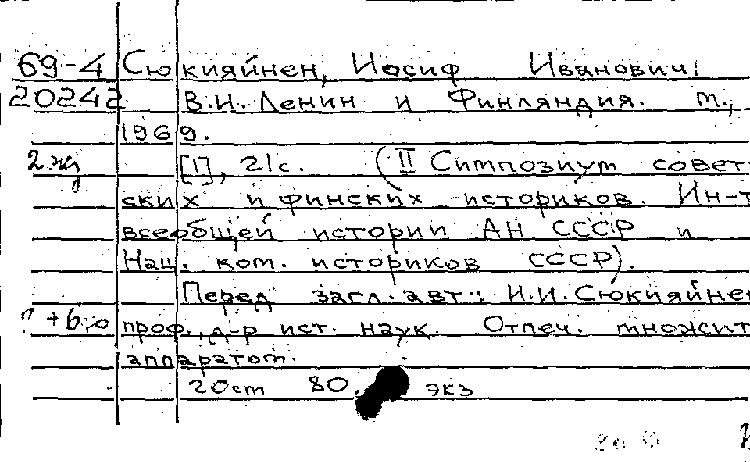 69-4 Сюкияйнен, Иосиф Иванович.
20242 В.И. Ленин и Финляндия. М.,
1969.
2 жд [1], 21с. (II Симпозиум совет-
ских и финских историков. Ин-т
всеобщей истории АН СССР и
Нац. ком. историков СССР).
Перед загл. авт.: И.И. Сюкияйнен
проф., д-р ист. наук. Отпеч. множит
аппаратом.
20см 80. экз